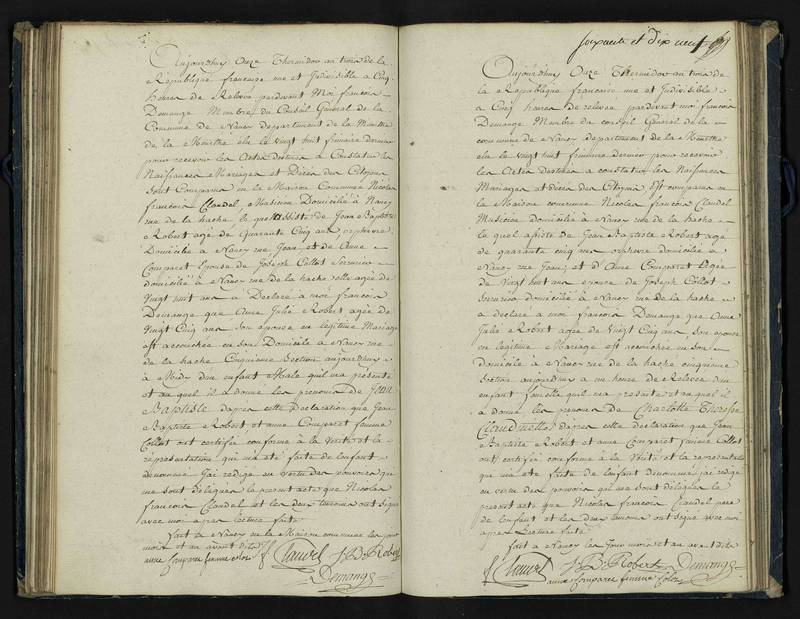 Aujourd'huy Onze Thermidor an trois de la
République francaise une et Indivisible a Cinq
heures de Relevée pardevant Moi francois
Demange Membre du Conseil Général de la
Commune de Nancy departement de la Meurthe
élu le vingt huit frimaire dernier
pour recevoir les Actes destinés a Constater les
Naissances Mariages et Décès des Citoyens
sont Comparus en la Maison Commune Nicolas
francois Claudel, Musicien Domicilié à Nancy
rue de la hache lequel assisté de Jean Baptiste
Robert agé de Quarante Cinq ans, orphevre
Domicilié a Nancy rue Jean et de Anne
Comparet Epouse de Joseph Collot Serrurier
domiciliée a Nancy rue de la hache elle agée de
Vingt huit ans a Déclaré a moi francois
Demange que Anne Julie Robert agée de
Vingt Cinq ans Son épouse en legitime Mariage
est accouchée en Son Domicile a Nancy rue
de la hache Cinquieme Section aujourdhuy
a Midy d'un enfant Male qu'il m'a présenté
et au quel il a donné les prenoms de Jean
Baptiste dapres cette Déclaration que Jean
Baptiste Robert et anne Comparet femme
Collot ont certifiée conforme à la Verité et la
représentation qui m'a eté faite de l'enfant
dénommé J'ai redigé en vertu des pouvoirs qui
me sont délégués le present acte que Nicolas
francois Claudel et les deux temoins ont signé
avec moi apres lecture faite
fait a Nancy en la Maison commune les jour
mois et an avant dits
anne Comparee femme Colot Claudel J B Robert
Demange
soixante et dix neuf
Aujourdhuy Onze Thermidor an trois de
la République francoise une et Indivisible
a Cinq heures de relevée pardevant moi francois
Demange Membre du conseil Général de la
commune de Nancy departement de la Meurthe
élu le vingt huit frimaire dernier pour recevoir
les Actes destinés a constater les Naissances
Mariages et Décès des Citoyens est comparu en
la Maison commune Nicolas francois Claudel
Musicien domicilié a Nancy rue de la hache
le quel assisté de Jean Baptiste Robert agé
de quarante cinq ans orphevre domicilié a
Nancy rue Jean, et d'Anne Comparet agée
de Vingt huit ans epouse de Joseph Collot
Serrurier domiciliée a Nancy rue de la hache
a déclaré a moi francois Demange que Anne
Julie Robert agée de Vingt Cinq ans Son epouse
en legitime Mariage est accouchée en Son
domicile a Nancy rue de la hache cinquieme
Section aujourdhuy a une heure de Relevée d'un
enfant femelle qu'il m'a presenté et au quel il
a donné les prenoms de Charlotte Therese
Claudinette dapres cette declaration que Jean
Baptiste Robert et anne Comparet femme Collot
ont certifiée conforme à la Vérité et la representation
qui m'a été faite de l'enfant dénommé j'ai redigé
en vertu des pouvoirs qui me sont délégués le
present acte que Nicolas francois Claudel pere
de l'enfant et les deux temoins ont signé avec moi
apres lecture faite
fait a Nancy les jour mois et an avant dits
Claudel J B Robert Demange
anne Comparee femme Colot